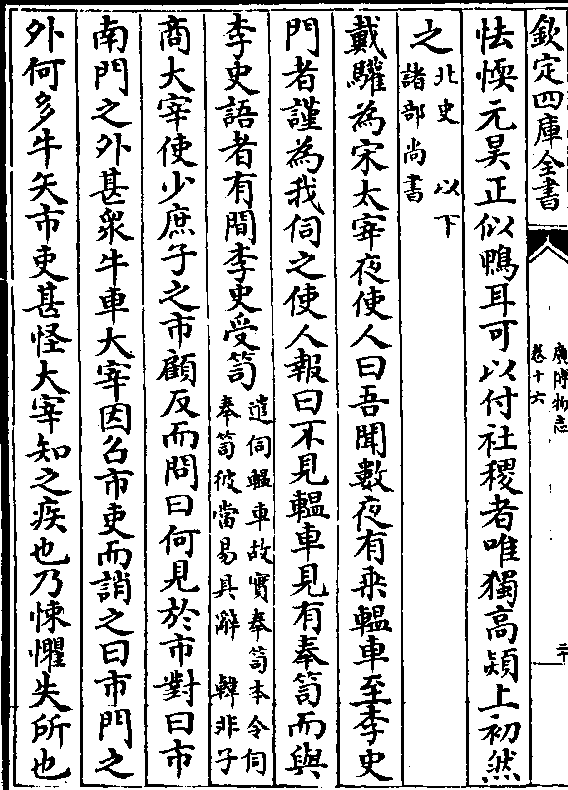 欽定四庫全書
廣博物志
卷十六
二十
怯愞元昊正似鴨耳可以付社稷者唯獨高熲上初然
之北史 以下
諸部尚書
戴驩為宋太宰夜使人曰吾聞數夜有乘轀車至李史
門者謹為我伺之使人報曰不見轀車見有奉笥而與
李史語者有間李史受笥遣伺轀車故實奉笥本令伺
奉笥彼當易其辭 韓非子
商大宰使少庶子之市顧反而問曰何見於市對曰市
南門之外甚衆牛車大宰因召市吏而誚之曰市門之
外何多牛矢市吏甚怪大宰知之疾也乃悚懼失所也